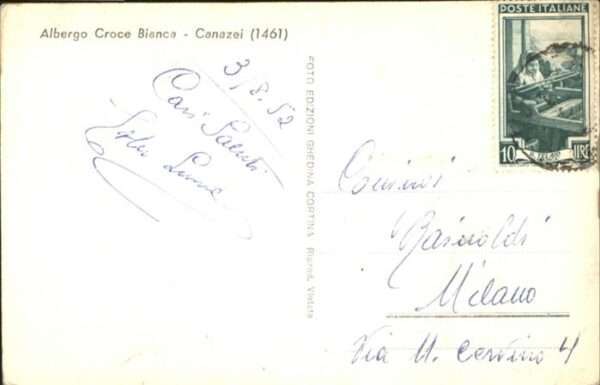 Albergo Croce Bianca - Canazei (1461)
3/8.52
Cari Saluti
FOTO EDIZIONI GHEDINA CORTINA Riprod. Vietata
POSTE ITALIANE
10 LIRE
IL TELAIO
Milano
Via M. Cervino 4